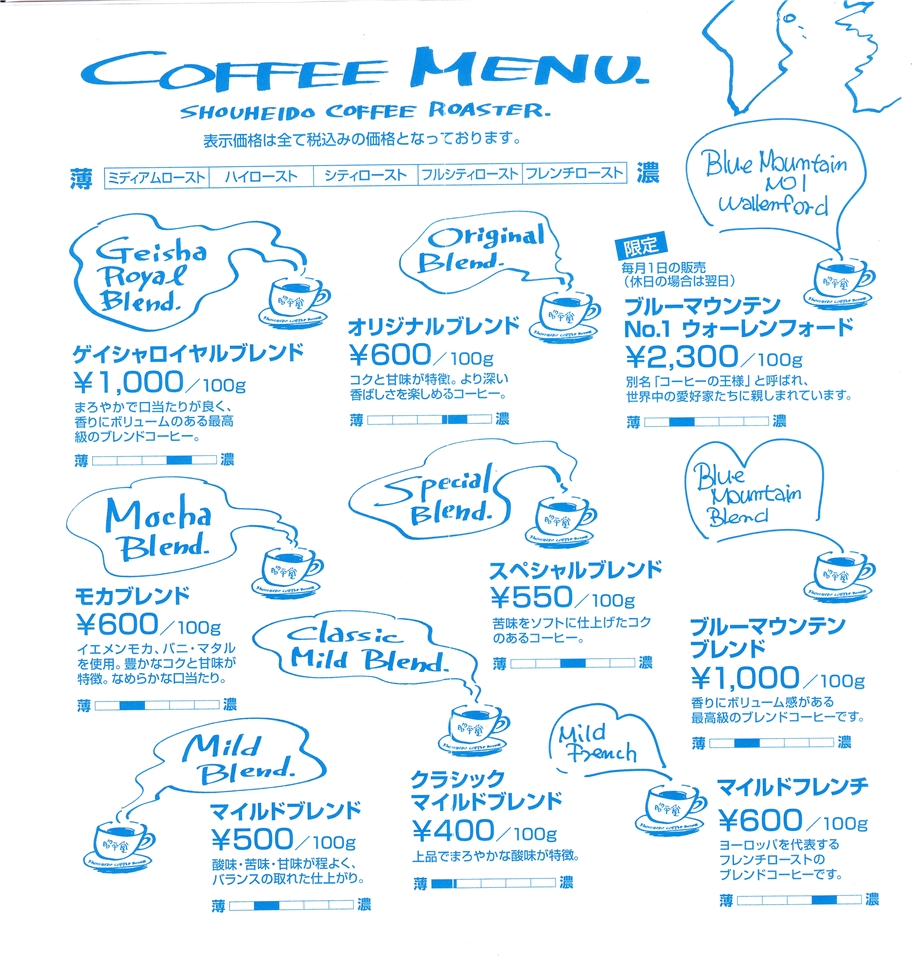 COFFEE MENU.
SHOUHEIDO COFFEE ROASTER.
表示価格は全て税込みの価格となっております。
薄 ミディアムロースト ハイロースト シティロースト フルシティロースト フレンチロースト 濃
Geisha
Royal
Blend.
昭平堂
SHOUHEIDO COFFEE ROOM
ゲイシャロイヤルブレンド
¥1,000/100g
まろやかで口当たりが良く、
香りにボリュームのある最高
級のブレンドコーヒー。
薄 濃
Original
Blend.
昭平堂
SHOUHEIDO COFFEE ROOM
オリジナルブレンド
¥600/100g
コクと甘味が特徴。より深い
香ばしさを楽しめるコーヒー。
薄 濃
Blue Mountain
NO1
Wallenford
昭平堂
SHOUHEIDO COFFEE ROOM
限定
毎月1日の販売
(休日の場合は翌日)
ブルーマウンテン
No.1 ウォーレンフォード
¥2,300/100g
別名「コーヒーの王様」と呼ばれ、
世界中の愛好家たちに親しまれています。
薄 濃
Mocha
Blend.
昭平堂
SHOUHEIDO COFFEE ROOM
モカブレンド
¥600/100g
イエメンモカ、バニ・マタル
を使用。豊かなコクと甘味が
特徴。なめらかな口当たり。
薄 濃
Special
Blend.
昭平堂
SHOUHEIDO COFFEE ROOM
スペシャルブレンド
¥550/100g
苦味をソフトに仕上げたコク
のあるコーヒー。
薄 濃
Blue
Mountain
Blend
昭平堂
SHOUHEIDO COFFEE ROOM
ブルーマウンテン
ブレンド
¥1,000/100g
香りにボリューム感がある
最高級のブレンドコーヒーです。
薄 濃
Classic
Mild Blend.
昭平堂
SHOUHEIDO COFFEE ROOM
クラシック
マイルドブレンド
¥400/100g
上品でまろやかな酸味が特徴。
薄 濃
Mild
Blend.
昭平堂
SHOUHEIDO COFFEE ROOM
マイルドブレンド
¥500/100g
酸味・苦味・甘味が程よく、
バランスの取れた仕上がり。
薄 濃
Mild
French
昭平堂
SHOUHEIDO COFFEE ROOM
マイルドフレンチ
¥600/100g
ヨーロッパを代表する
フレンチローストの
ブレンドコーヒーです。
薄 濃